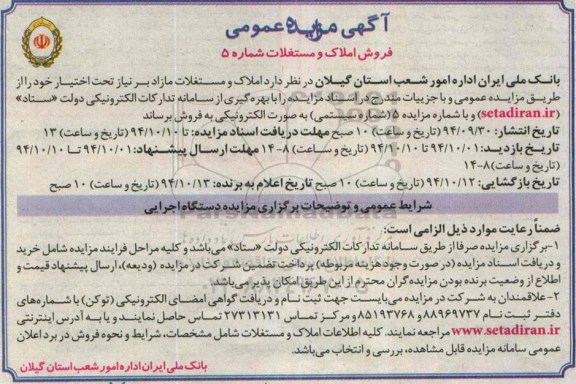 آگهی مزایده عمومی
فروش املاک و مستغلات شماره ۵
بانک ملی ایران اداره امور شعب استان گیلان در نظر دارد املاک و مستغلات مازاد بر نیاز تحت اختیار خود را از
طریق مزایده عمومی و با جزییات مندرج در اسناد مزایده را با بهره‌گیری از سامانه تدارکات الکترونیکی دولت «ستاد»
(setadiran.ir) و با شماره مزایده ۵ (شماره سیستمی) به صورت الکترونیکی به فروش برساند
تاریخ انتشار: ۹۴/۰۹/۳۰ (تاریخ و ساعت) ۱۰ صبح مهلت دریافت اسناد مزایده: تا ۹۴/۱۰/۱۰ (تاریخ و ساعت) ۱۳
تاریخ بازدید: ۹۴/۱۰/۰۱ تا ۹۴/۱۰/۱۰ (تاریخ و ساعت) ۸-۱۴ مهلت ارسال پیشنهاد: ۹۴/۱۰/۰۱ تا ۹۴/۱۰/۱۰
(تاریخ و ساعت) ۸-۱۴
تاریخ بازگشایی: ۹۴/۱۰/۱۲ (تاریخ و ساعت) ۱۰ صبح تاریخ اعلام به برنده: ۹۴/۱۰/۱۳ (تاریخ و ساعت) ۱۰ صبح
شرایط عمومی و توضیحات برگزاری مزایده دستگاه اجرایی
ضمناً رعایت موارد ذیل الزامی است:
۱-برگزاری مزایده صرفا از طریق سامانه تدارکات الکترونیکی دولت «ستاد» می‌باشد و کلیه مراحل فرایند مزایده شامل خرید
و دریافت اسناد مزایده (در صورت وجود هزینه مربوطه) پرداخت تضمین شرکت در مزایده (ودیعه)، ارسال پیشنهاد قیمت و
اطلاع از وضعیت برنده بودن مزایده گران محترم از این طریق امکان پذیر می‌باشد.
۲- علاقمندان به شرکت در مزایده می‌بایست جهت ثبت نام و دریافت گواهی امضای الکترونیکی (توکن) با شماره‌های
دفتر ثبت نام ۸۸۹۶۹۷۳۷ و ۸۵۱۹۳۷۶۸ و مرکز تماس ۲۷۳۱۳۱۳۱ تماس حاصل نمایند و یا به آدرس اینترنتی
www.setadiran.ir مراجعه نمایند. کلیه اطلاعات املاک و مستغلات شامل مشخصات، شرایط و نحوه فروش در برد اعلان
عمومی سامانه مزایده قابل مشاهده، بررسی و انتخاب می‌باشد.
بانک ملی ایران اداره امور شعب استان گیلان